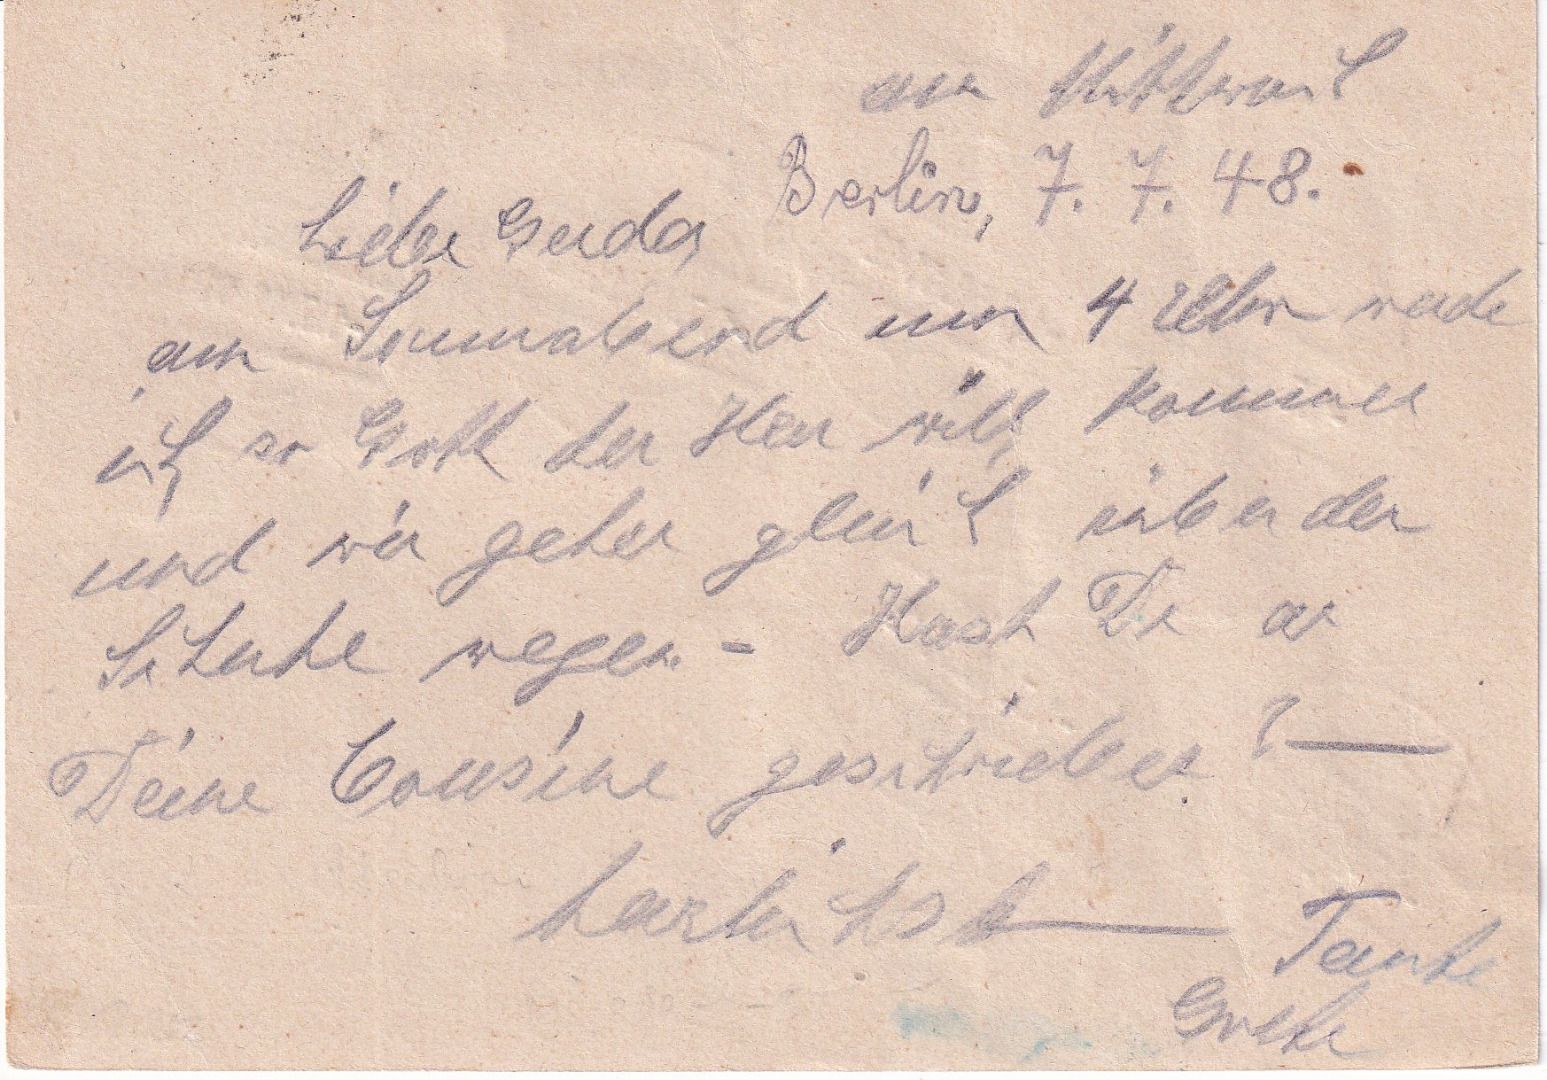 am Mittwoch
Berlin, 7. 7. 48.
Liebe Gerda,
am Sonnabend um 4 Uhr werde
ich so Gott der Herr will, kommen
und wir gehen gleich über der
Schuhe wegen - Hast Du an
Deine Cousine geschrieben? —
herzlichst — Tante
Grete